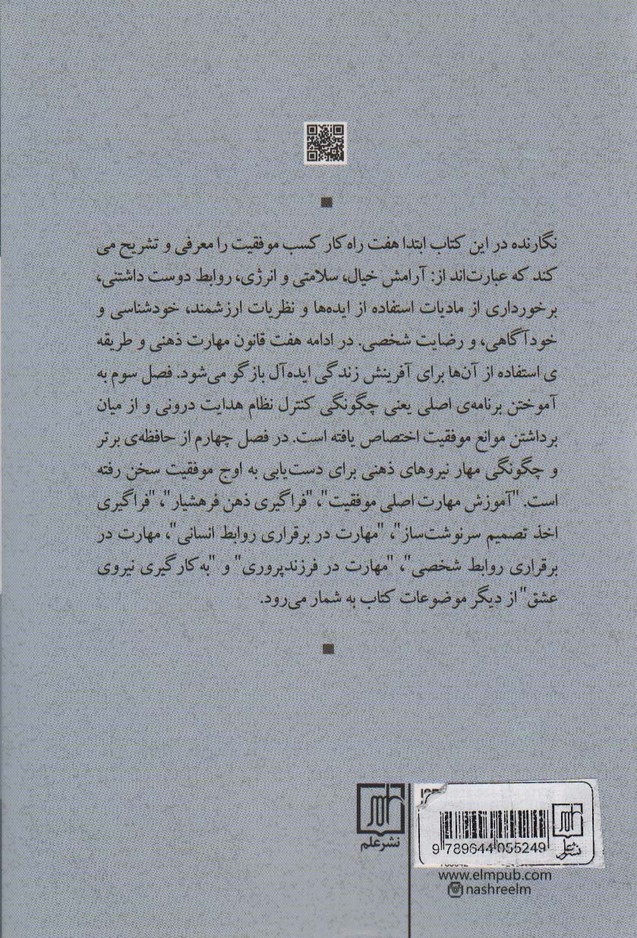 نگارنده در این کتاب ابتدا هفت راه‌کار کسب موفقیت را معرفی و تشریح می
کند که عبارت‌اند از: آرامش خیال، سلامتی و انرژی، روابط دوست داشتنی،
برخورداری از مادیات استفاده از ایده‌ها و نظریات ارزشمند، خودشناسی و
خودآگاهی، و رضایت شخصی. در ادامه هفت قانون مهارت ذهنی و طریقه
ی استفاده از آن‌ها برای آفرینش زندگی ایده‌آل بازگو می‌شود. فصل سوم به
آموختن برنامه‌ی اصلی یعنی چگونگی کنترل نظام هدایت درونی و از میان
برداشتن موانع موفقیت اختصاص یافته است. در فصل چهارم از حافظه‌ی برتر
و چگونگی مهار نیروهای ذهنی برای دست‌یابی به اوج موفقیت سخن رفته
است. "آموزش مهارت اصلی موفقیت"، "فراگیری ذهن فرهشیار"، "فراگیری
اخذ تصمیم سرنوشت‌ساز"، "مهارت در برقراری روابط انسانی"، مهارت در
برقراری روابط شخصی"، "مهارت در فرزندپروری" و "به‌کارگیری نیروی
عشق" از دیگر موضوعات کتاب به شمار می‌رود.
نشر علم
نشر علم
9 789644 055249
www.elmpub.com
nashreelm